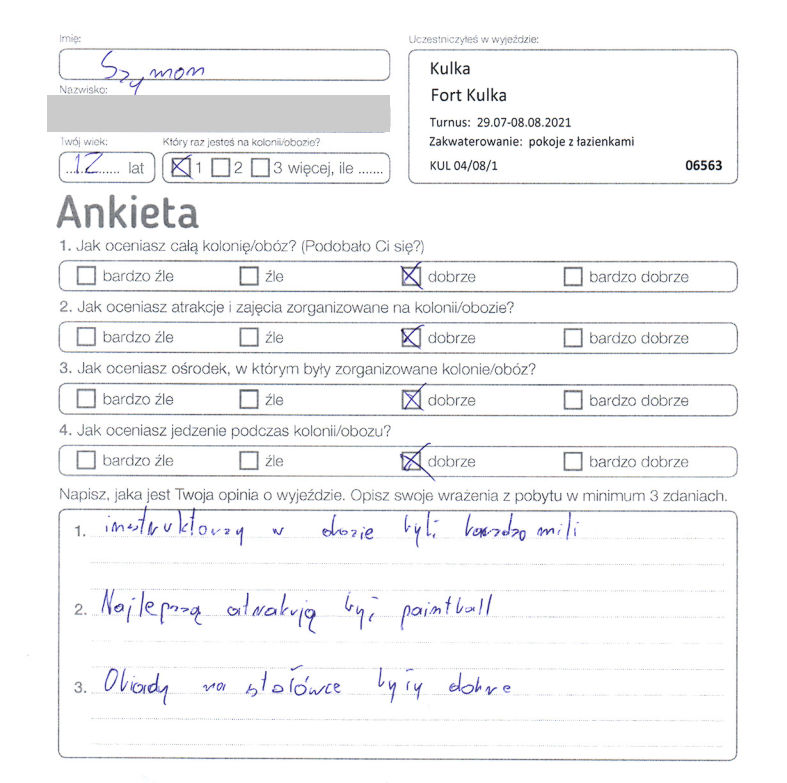 Imię:
Szymon
Nazwisko:
Twój wiek:
12 lat
Który raz jesteś na kolonii/obozie?
1 2 3 więcej, ile .......
Uczestniczyłeś w wyjeździe:
Kulka
Fort Kulka
Turnus: 29.07-08.08.2021
Zakwaterowanie: pokoje z łazienkami
KUL 04/08/1 06563
Ankieta
1. Jak oceniasz całą kolonię/obóz? (Podobało Ci się?)
bardzo źle źle dobrze bardzo dobrze
2. Jak oceniasz atrakcje i zajęcia zorganizowane na kolonii/obozie?
bardzo źle źle dobrze bardzo dobrze
3. Jak oceniasz ośrodek, w którym były zorganizowane kolonie/obóz?
bardzo źle źle dobrze bardzo dobrze
4. Jak oceniasz jedzenie podczas kolonii/obozu?
bardzo źle źle dobrze bardzo dobrze
Napisz, jaka jest Twoja opinia o wyjeździe. Opisz swoje wrażenia z pobytu w minimum 3 zdaniach.
1. instruktorzy w obozie byli bardzo mili
2. Najlepszą atrakcją był paintball
3. Obiady na stołówce były dobre